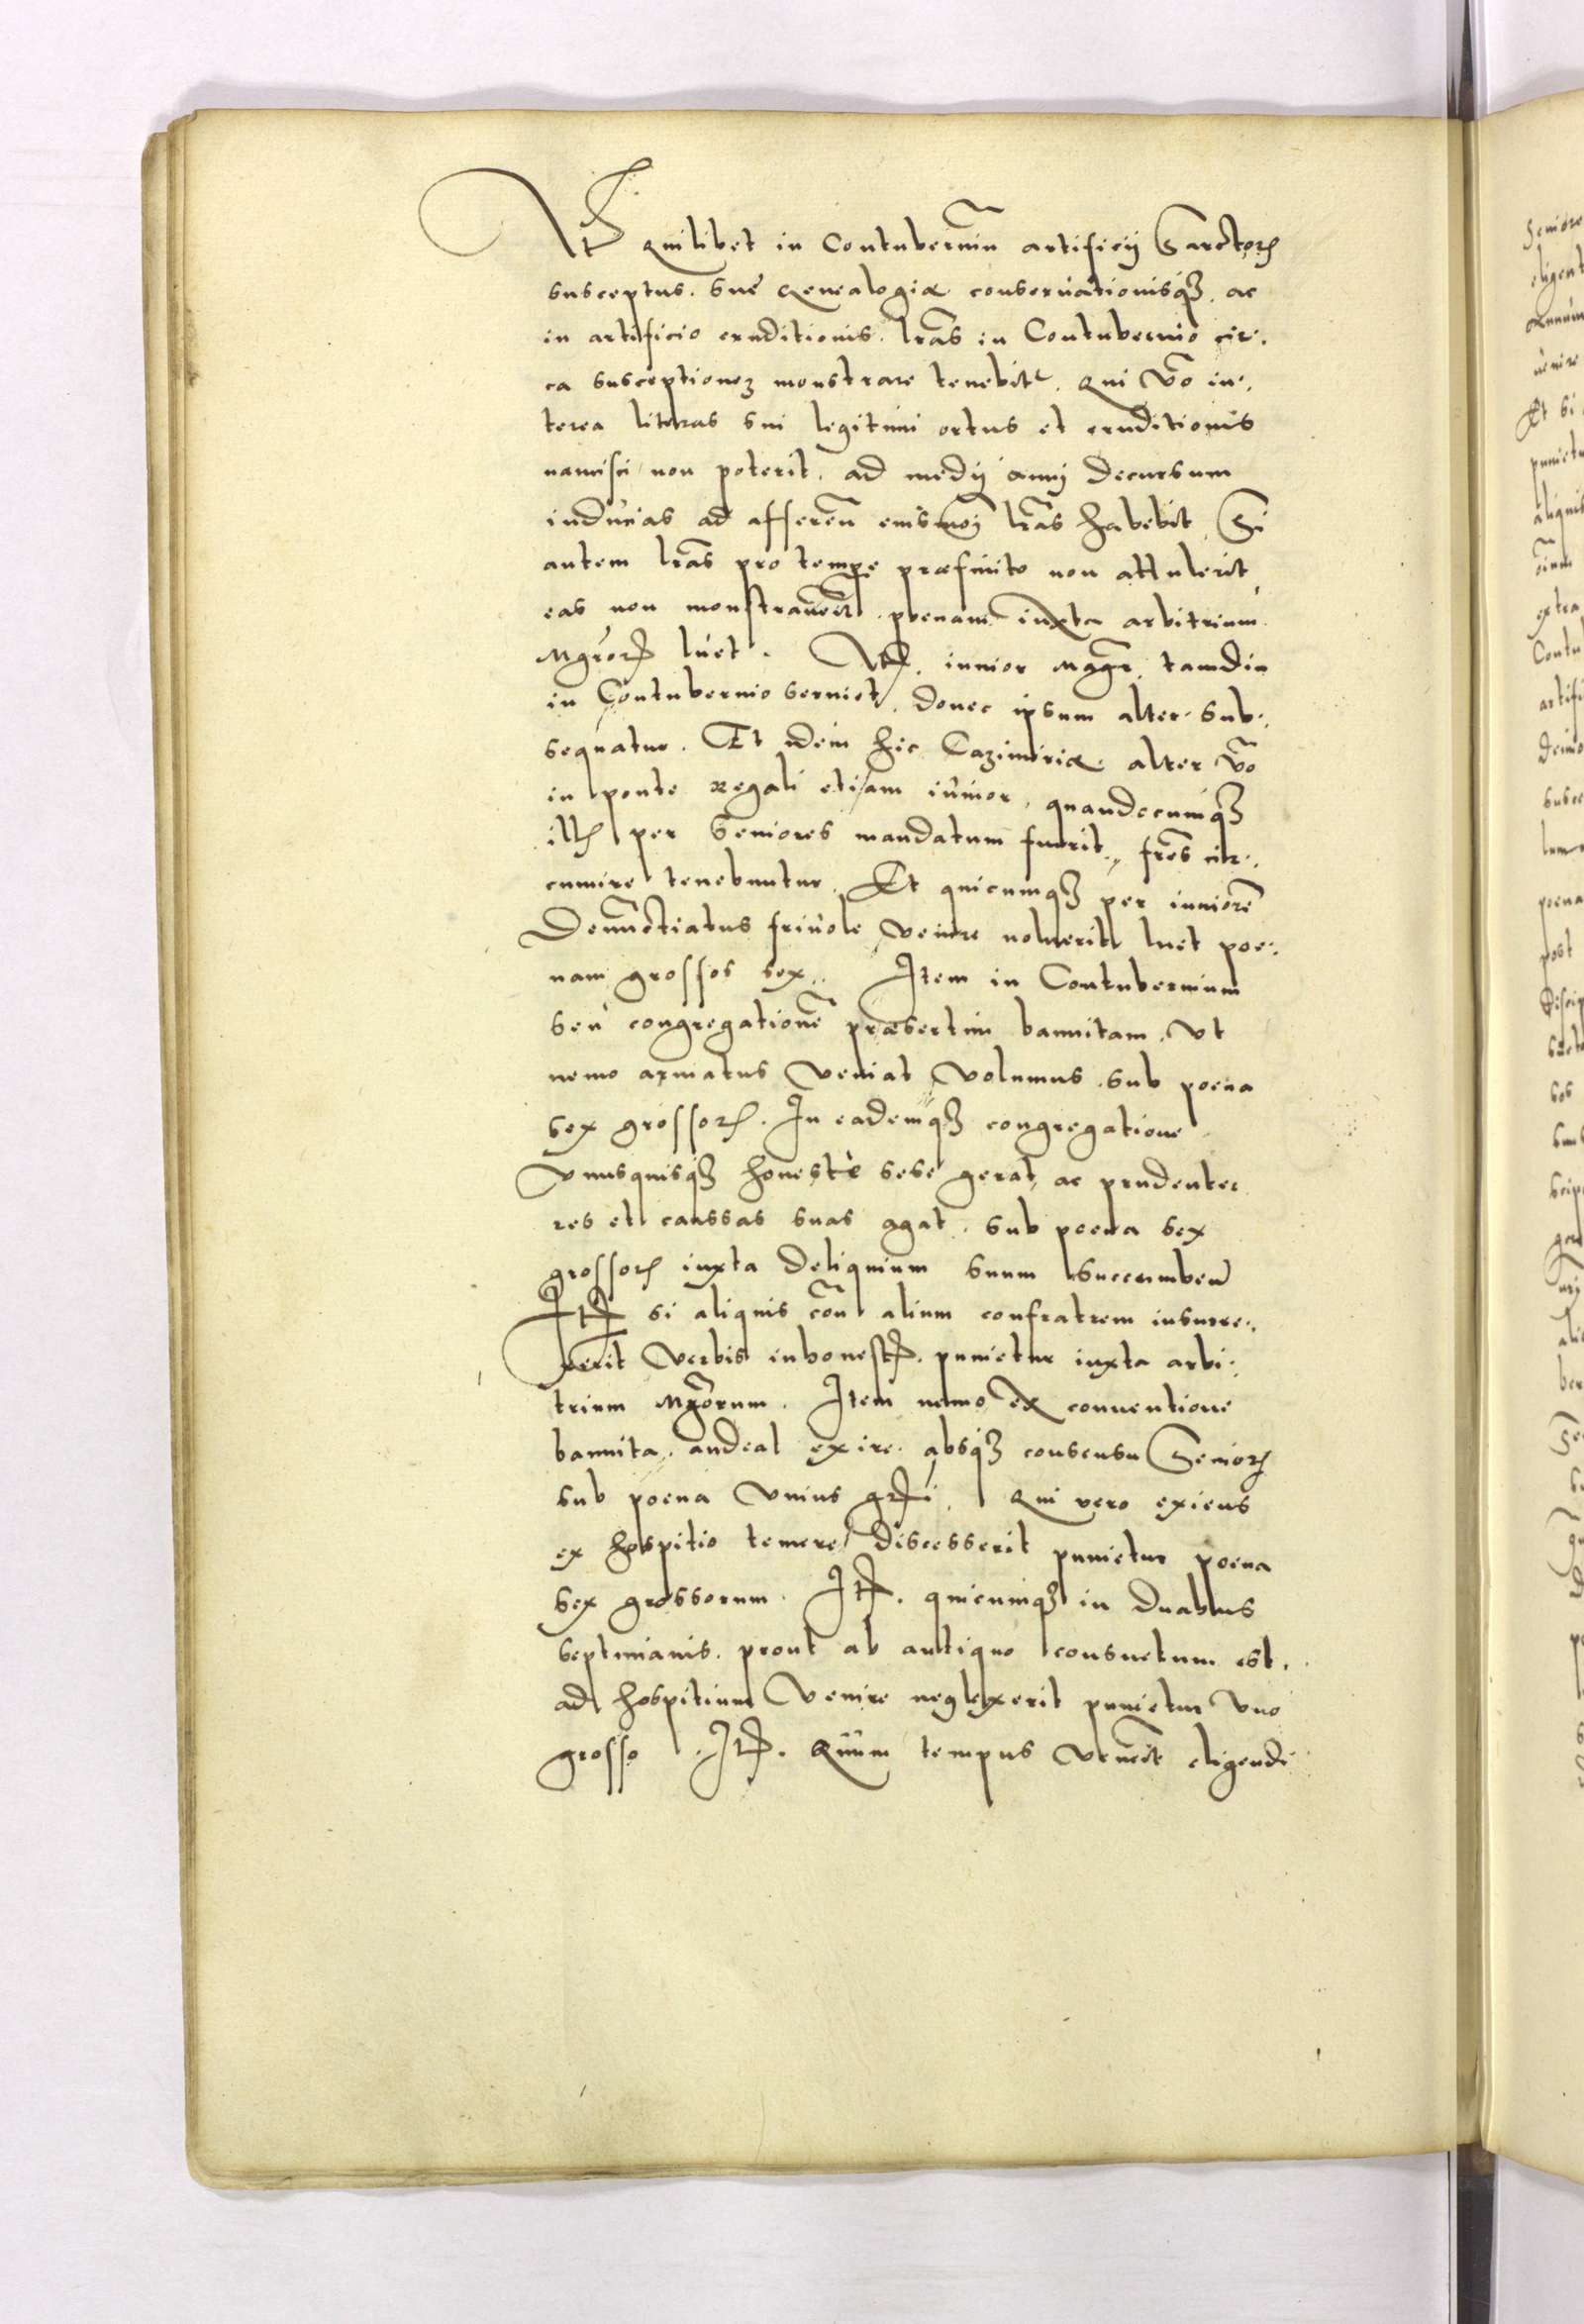 Ut Quilibet in Contuberniũ artificij Sarctorꝝ
susceptus. suę Genealogiæ conseruationisqꝫ. ac
in artificio eruditionis. lr̃as in Contubernio cir.
ca susceptioneꝫ monstrare tenebitr. Qui vr̃o in.
terea literas sui legitimi ortus et eruditionis
nancisci non poterit. ad medij anni decursum
inducias ad afferen̄ eiusmoj lr̃as habebit Si
autem lr̃as pro tempe præfinito non attulerit
eas non monstraverit. poenam iuxta arbitrium
Mgr̃orꝝ luet. Itꝫ. iunior Mgr̃ tamdiu
in Contubernio serviet. donec ipsum alter sub.
sequatur. Et idem hic Cazimiriæ. alter vr̃o
in ponte regali etiam iunior. quandocumqꝫ
illꝭ per Seniores mandatum fuerit, fr̃es cir.
cumire tenebuntur. Et quicumqꝫ per iuniorẽ
Denũctiatus frivole venire noluerit luet poe.
nam grossos sex. Item in Contubernium
seu congregationẽ præsertim bannitam. ut
nemo armatus veniat volumus. sub poena
sex grossorꝝ. In eademqꝫ congregatione
Unusquisqꝫ honestè sese gerat, ac prudenter
res et caussas suas agat. sub poena sex
grossorꝝ iuxta deliquium suum succumben̄
Itꝫ si aliquis cõn alium confratrem insurre.
xerit verbis inhonestꝭ. punietur iuxta arbi.
trium Mgr̃orum. Item nemo ex conventione
bannita. audeat exire. absqꝫ consensu Seniorꝝ
sub poena unius grꝭi. Qui vero exiens
ex hospitio temere discesserit punietur poena
sex grossorum. Itꝫ. quicumqꝫ in duabus
septimanis. prout ab antiquo consuetum est.
ad hospitium venire neglexerit punietur uno
grosso. Itꝫ. Quum tempus venerit eligendi